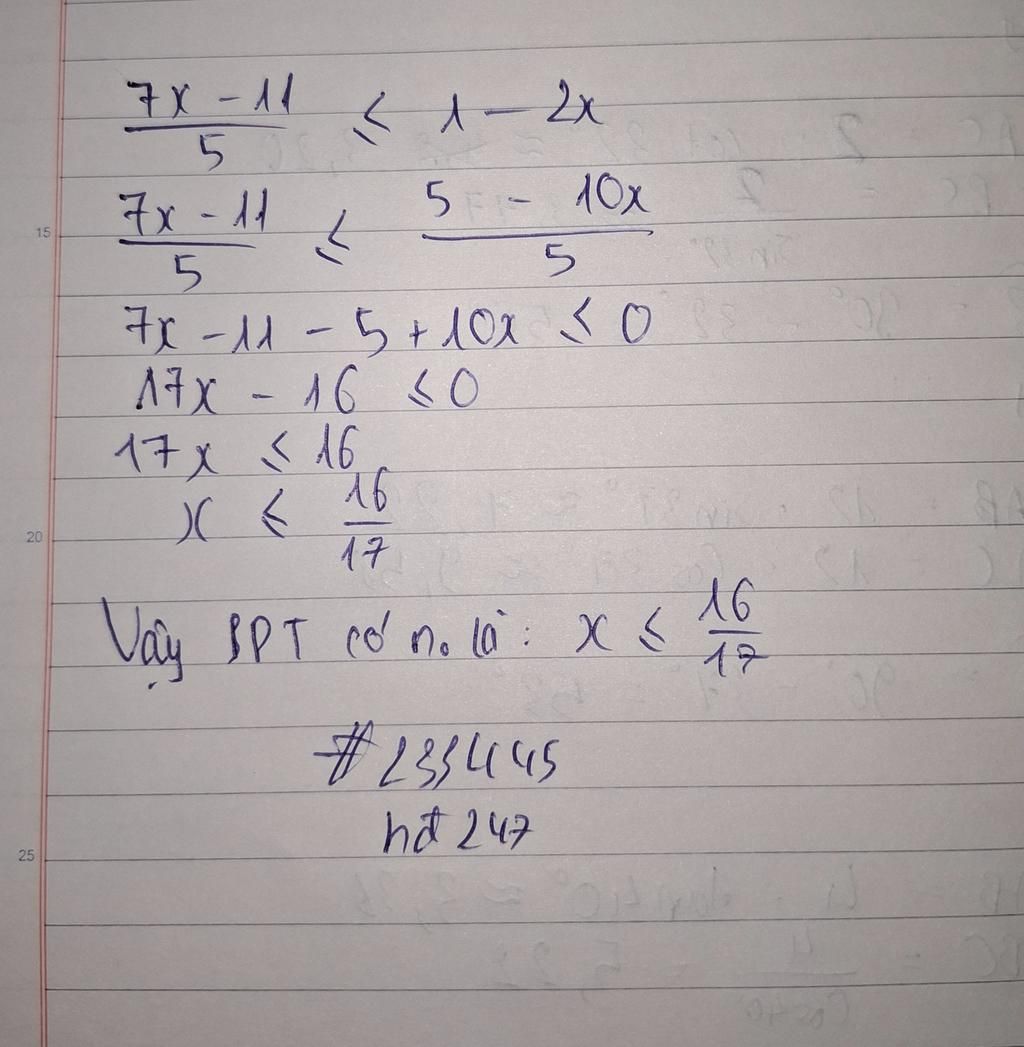 7x - 11 / 5 ≤ 1 - 2x
15
7x - 11 / 5 ≤ 5 - 10x / 5
7x - 11 - 5 + 10x ≤ 0
17x - 16 ≤ 0
17x ≤ 16
20
x ≤ 16 / 17
Vậy BPT có n₀ là: x ≤ 16 / 17
# 233445
hđ 247
25